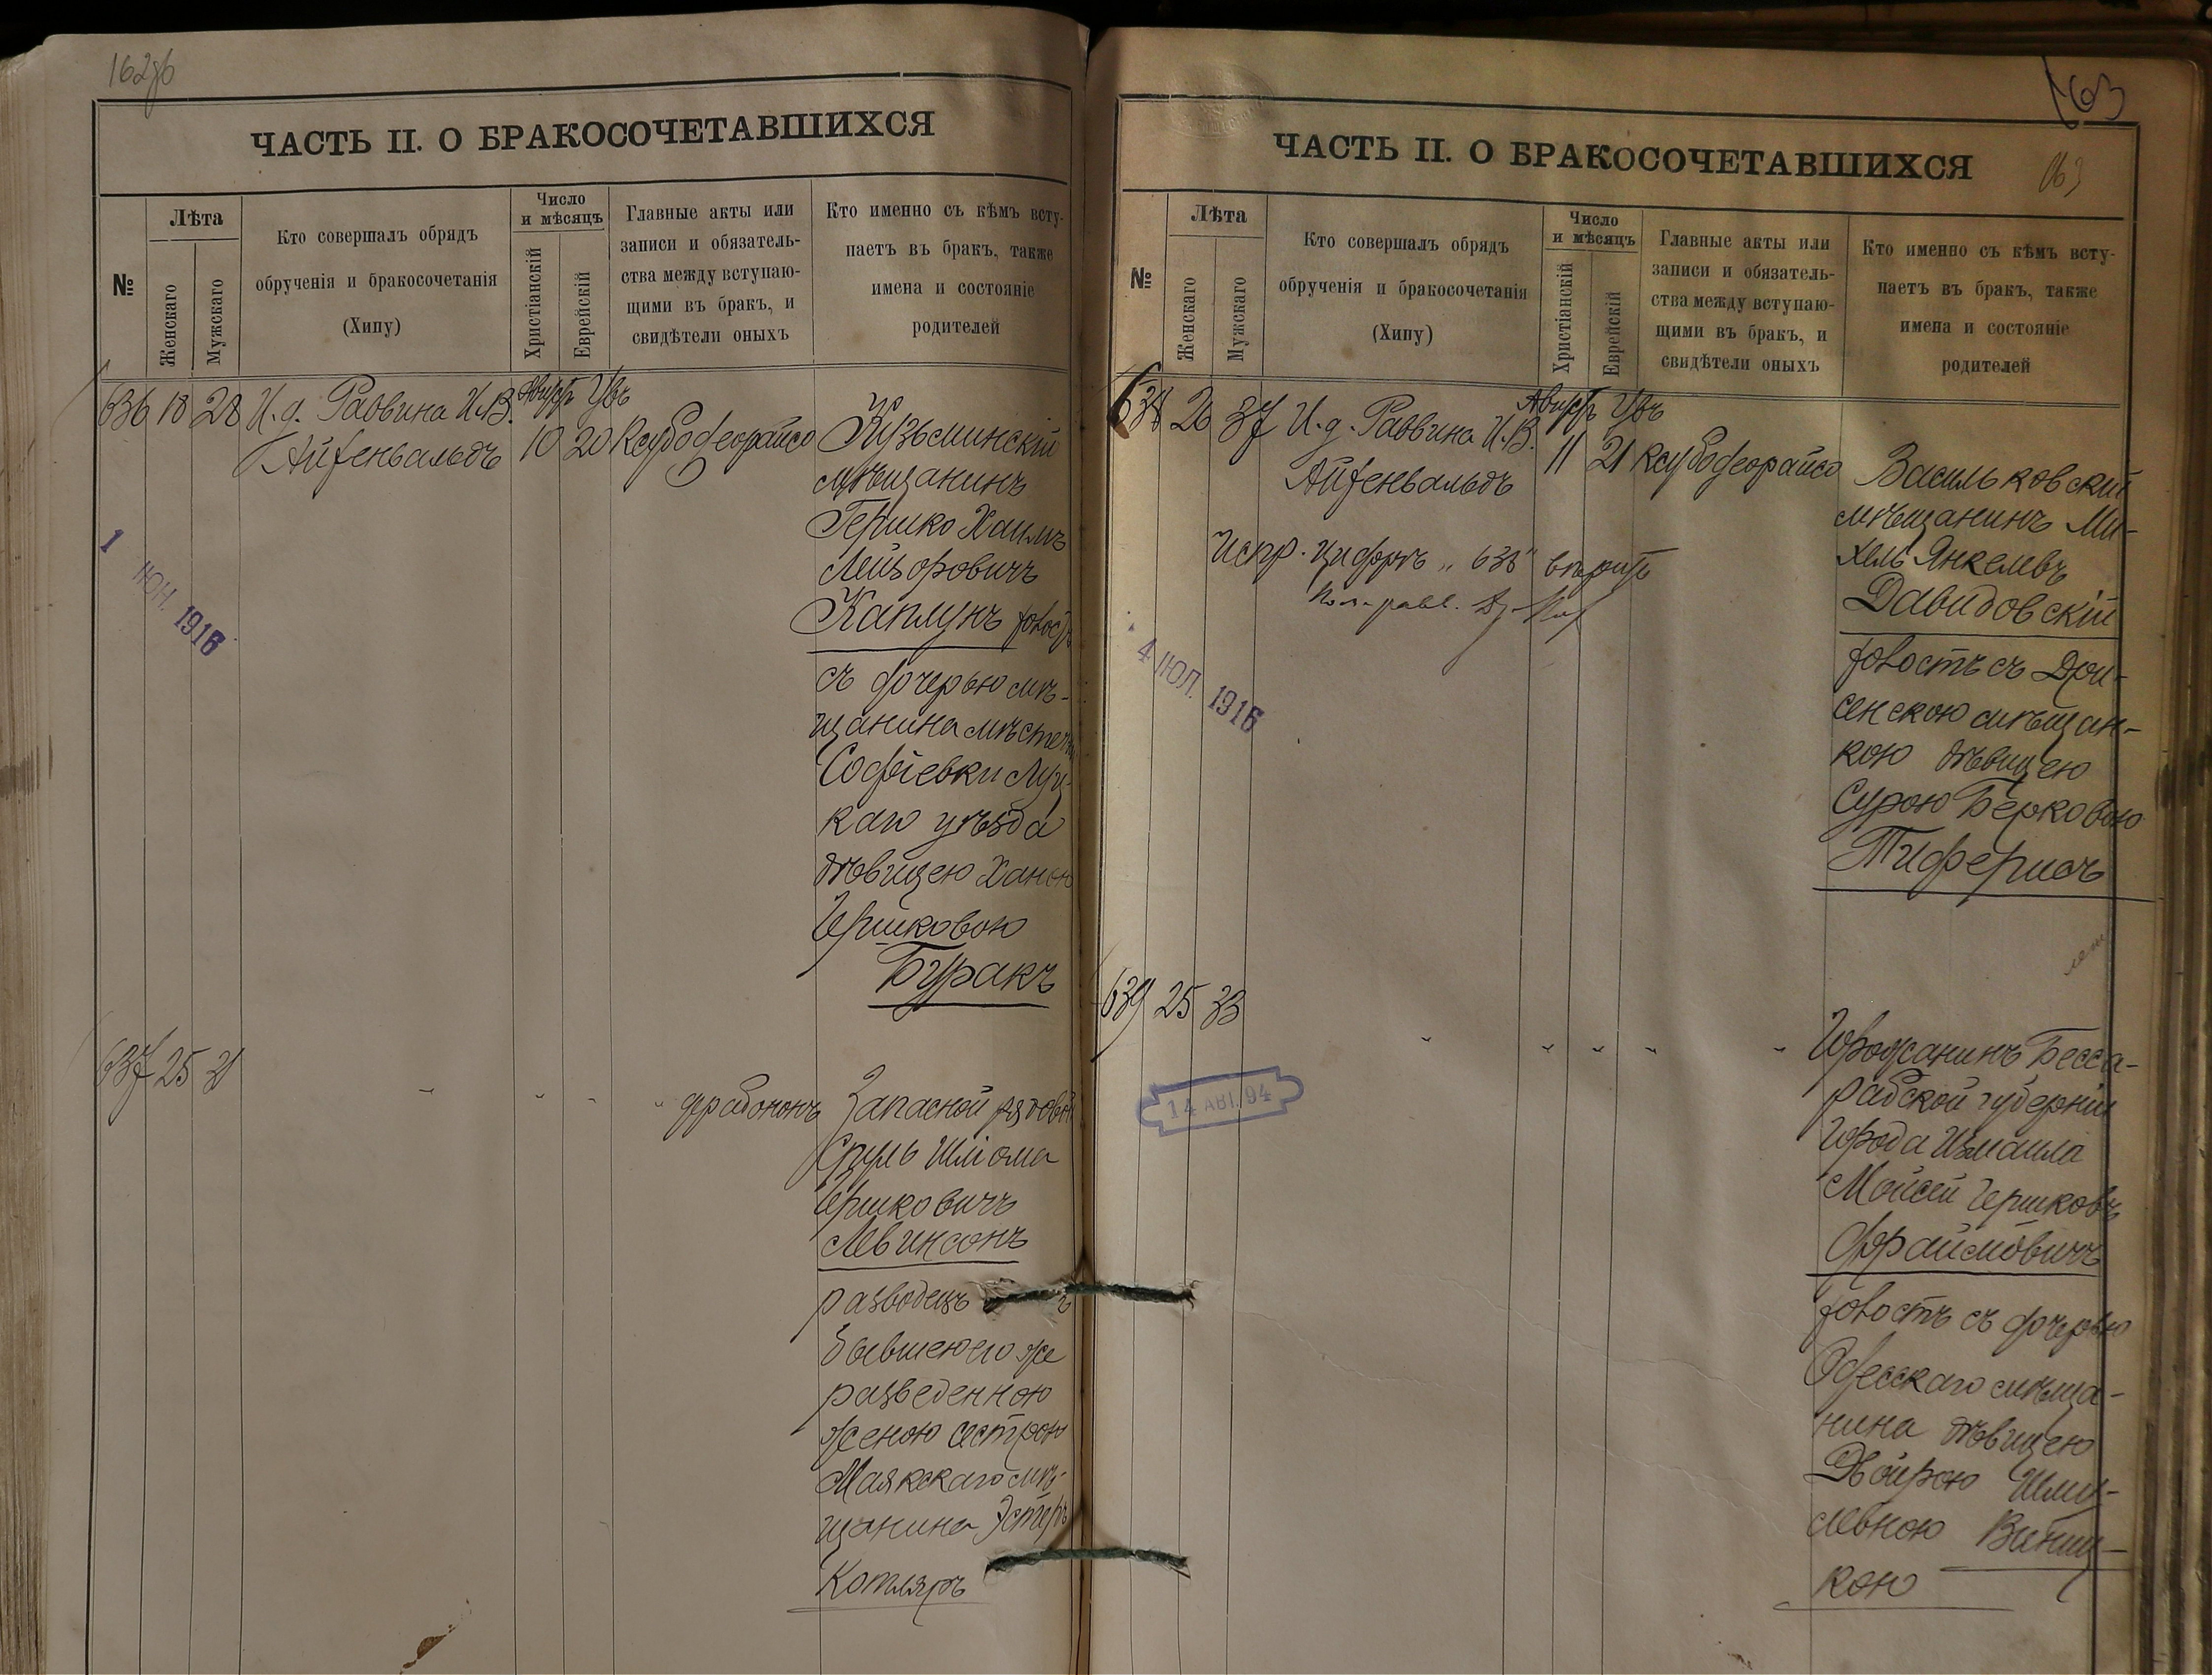 162об
ЧАСТЬ II. О БРАКОСОЧЕТАВШИХСЯ
№
Лѣта
Женскаго
Мужскаго
Кто совершалъ обрядъ
обрученія и бракосочетанія
(Хипу)
Число
и мѣсяцъ
Христіанскій
Еврейскій
Главные акты или
записи и обязатель-
ства между вступаю-
щими въ бракъ, и
свидѣтели оныхъ
Кто именно съ кѣмъ всту-
паетъ въ бракъ, также
имена и состояніе
родителей
636 18 28 И.д. Раввина И.В.
Айзенвальдъ 10 20
Кузьминскій
мѣщанинъ
Гершко Хаимъ
Лейзоровичъ
Каплунъ
съ дочерью мѣ-
щанина
Софіевки Луц-
каго уѣзда
дѣвицею Ханою
Гершковою
Буракъ
1 ІЮН. 1916
637 25
Запасной рядовой
Сруль Шліома
Гершковичъ
Левинсонъ
разводецъ
бывшею его же
разведенною
женою сестрою
Маякскаго мѣ-
щанина Эстеръ
Котляръ
163
163
ЧАСТЬ II. О БРАКОСОЧЕТАВШИХСЯ
№
Лѣта
Женскаго
Мужскаго
Кто совершалъ обрядъ
обрученія и бракосочетанія
(Хипу)
Число
и мѣсяцъ
Христіанскій
Еврейскій
Главные акты или
записи и обязатель-
ства между вступаю-
щими въ бракъ, и
свидѣтели оныхъ
Кто именно съ кѣмъ всту-
паетъ въ бракъ, также
имена и состояніе
родителей
638 20 37 И.д. Раввина И.В.
Айзенвальдъ 11 21
Испр. цифрѣ „638“ вѣрить
4 ІЮЛ. 1916
Васильковскій
мѣщанинъ Ми-
хель Янкелевъ
Давидовскій
холостъ съ Дри-
сенскою мѣщан-
кою дѣвицею
Сурою Берковою
Тиферисъ
639 25 33
14 АВГ. 94
Горожанинъ Бесса-
рабской губерніи
города Измаила
Мойсей Гершковъ
Фраймовичъ
холостъ съ дочерью
Одесскаго мѣща-
нина дѣвицею
Двойрою Шму-
левною Винниц-
кою